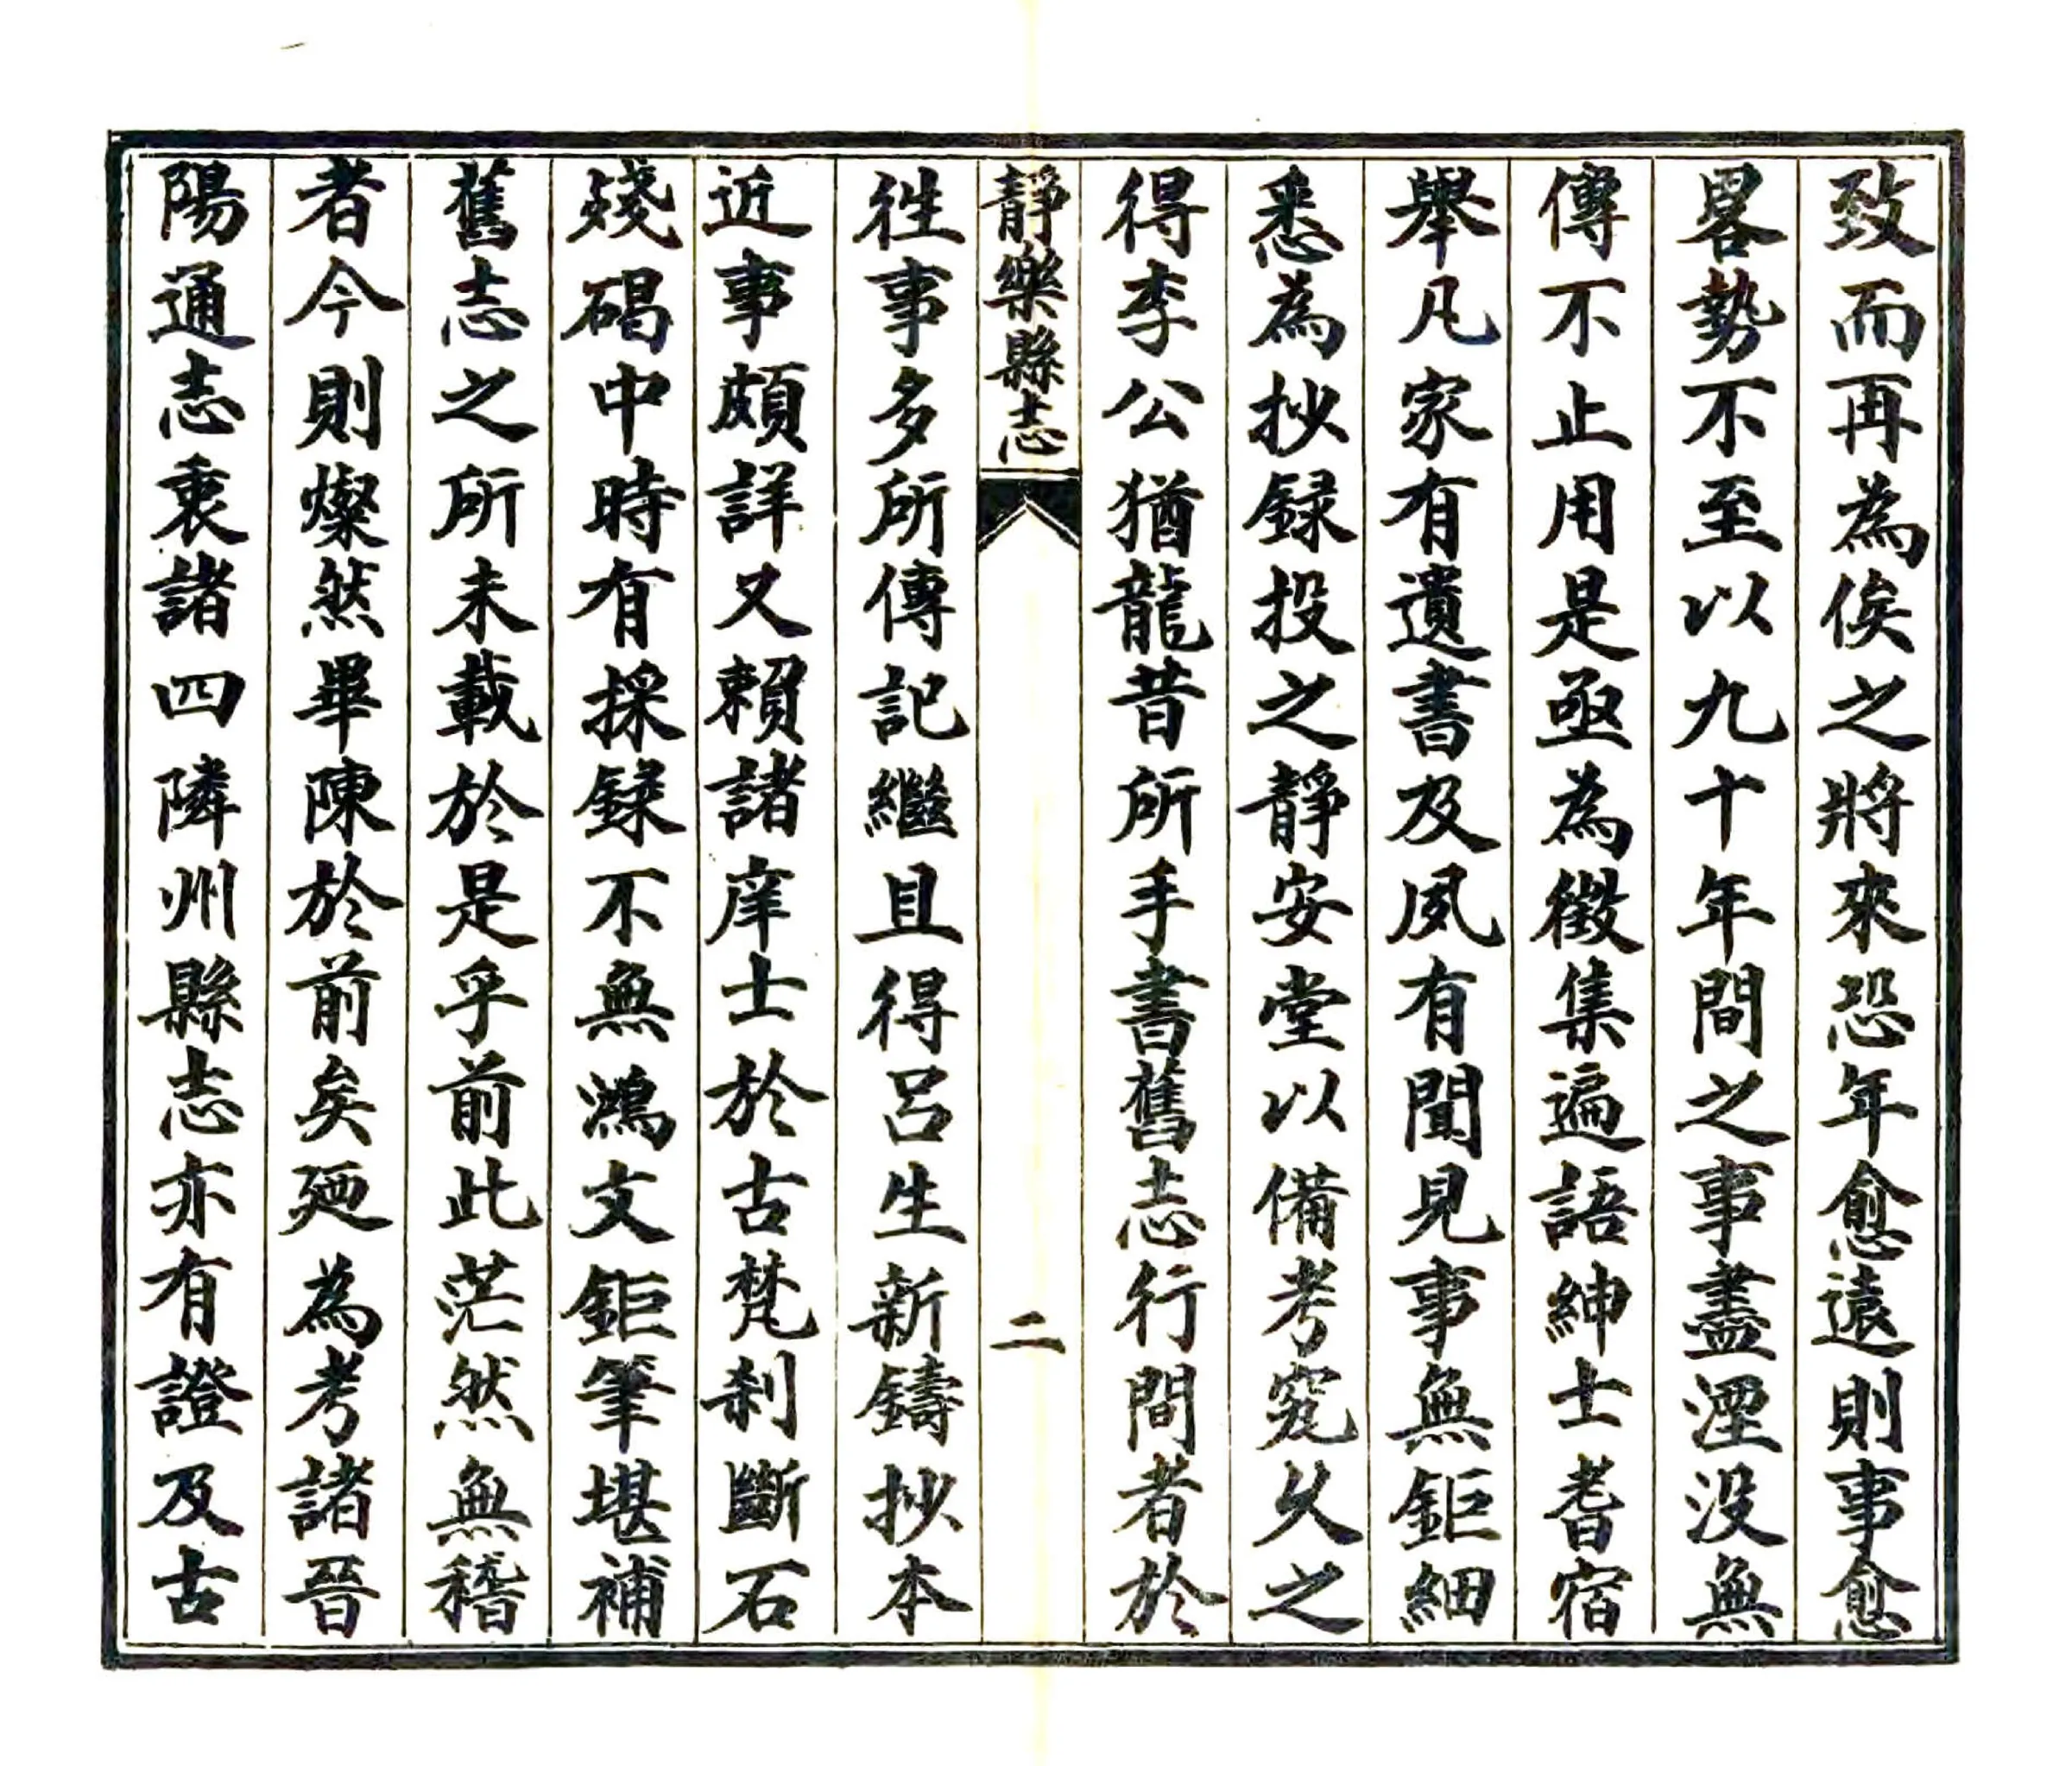 致而再為俟之將來恐年愈遠則事愈
畧勢不至以九十年間之事盡湮没無
傳不止用是亟為徵集遍語紳士耆宿
舉凡家有遺書及夙有聞見事無鉅細
悉為抄録投之靜安堂以備考究久之
得李公猶龍昔所手書舊志行間者於
靜樂縣志
二
徃事多所傳記繼且得呂生新鑄抄本
近事頗詳又賴諸庠士於古梵刹斷石
殘碣中時有採録不無鴻文鉅筆堪補
舊志之所未載於是乎前此茫然無稽
者今則燦然畢陳於前矣廼為考諸晉
陽通志衷諸四隣州縣志亦有證及古